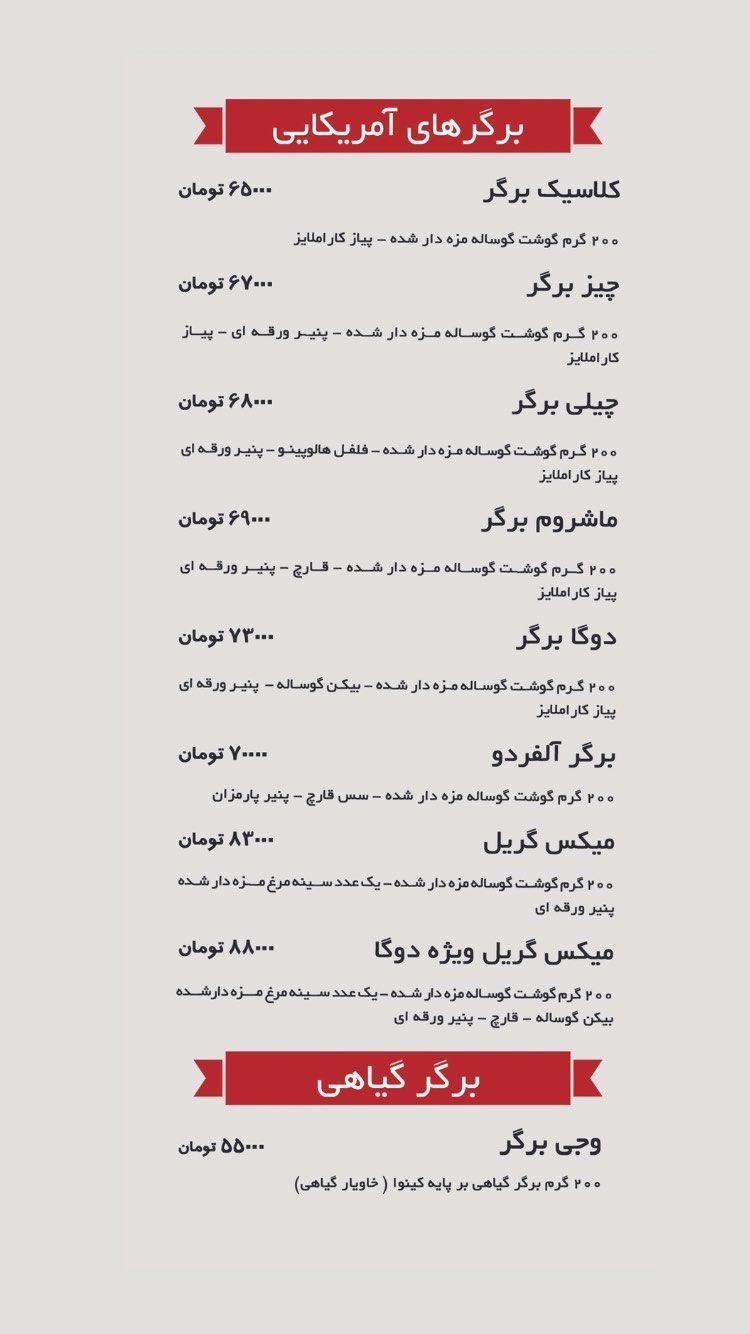 برگرهای آمریکایی
کلاسیک برگر ۶۵۰۰۰ تومان
۲۰۰ گرم گوشت گوساله مزه دار شده - پیاز کاراملایز
چیز برگر ۶۷۰۰۰ تومان
۲۰۰ گرم گوشت گوساله مزه دار شده - پنیر ورقه ای - پیاز
کاراملایز
چیلی برگر ۶۸۰۰۰ تومان
۲۰۰ گرم گوشت گوساله مزه دار شده - فلفل هالوپینو - پنیر ورقه ای
پیاز کاراملایز
ماشروم برگر ۶۹۰۰۰ تومان
۲۰۰ گرم گوشت گوساله مزه دار شده - قارچ - پنیر ورقه ای
پیاز کاراملایز
دوگا برگر ۷۳۰۰۰ تومان
۲۰۰ گرم گوشت گوساله مزه دار شده - بیکن گوساله - پنیر ورقه ای
پیاز کاراملایز
برگر آلفردو ۷۰۰۰۰ تومان
۲۰۰ گرم گوشت گوساله مزه دار شده - سس قارچ - پنیر پارمزان
میکس گریل ۸۳۰۰۰ تومان
۲۰۰ گرم گوشت گوساله مزه دار شده - یک عدد سینه مرغ مزه دار شده
پنیر ورقه ای
میکس گریل ویژه دوگا ۸۸۰۰۰ تومان
۲۰۰ گرم گوشت گوساله مزه دار شده - یک عدد سینه مرغ مزه دار شده
بیکن گوساله - قارچ - پنیر ورقه ای
برگر گیاهی
وجی برگر ۵۵۰۰۰ تومان
۲۰۰ گرم برگر گیاهی بر پایه کینوا ( خاویار گیاهی)